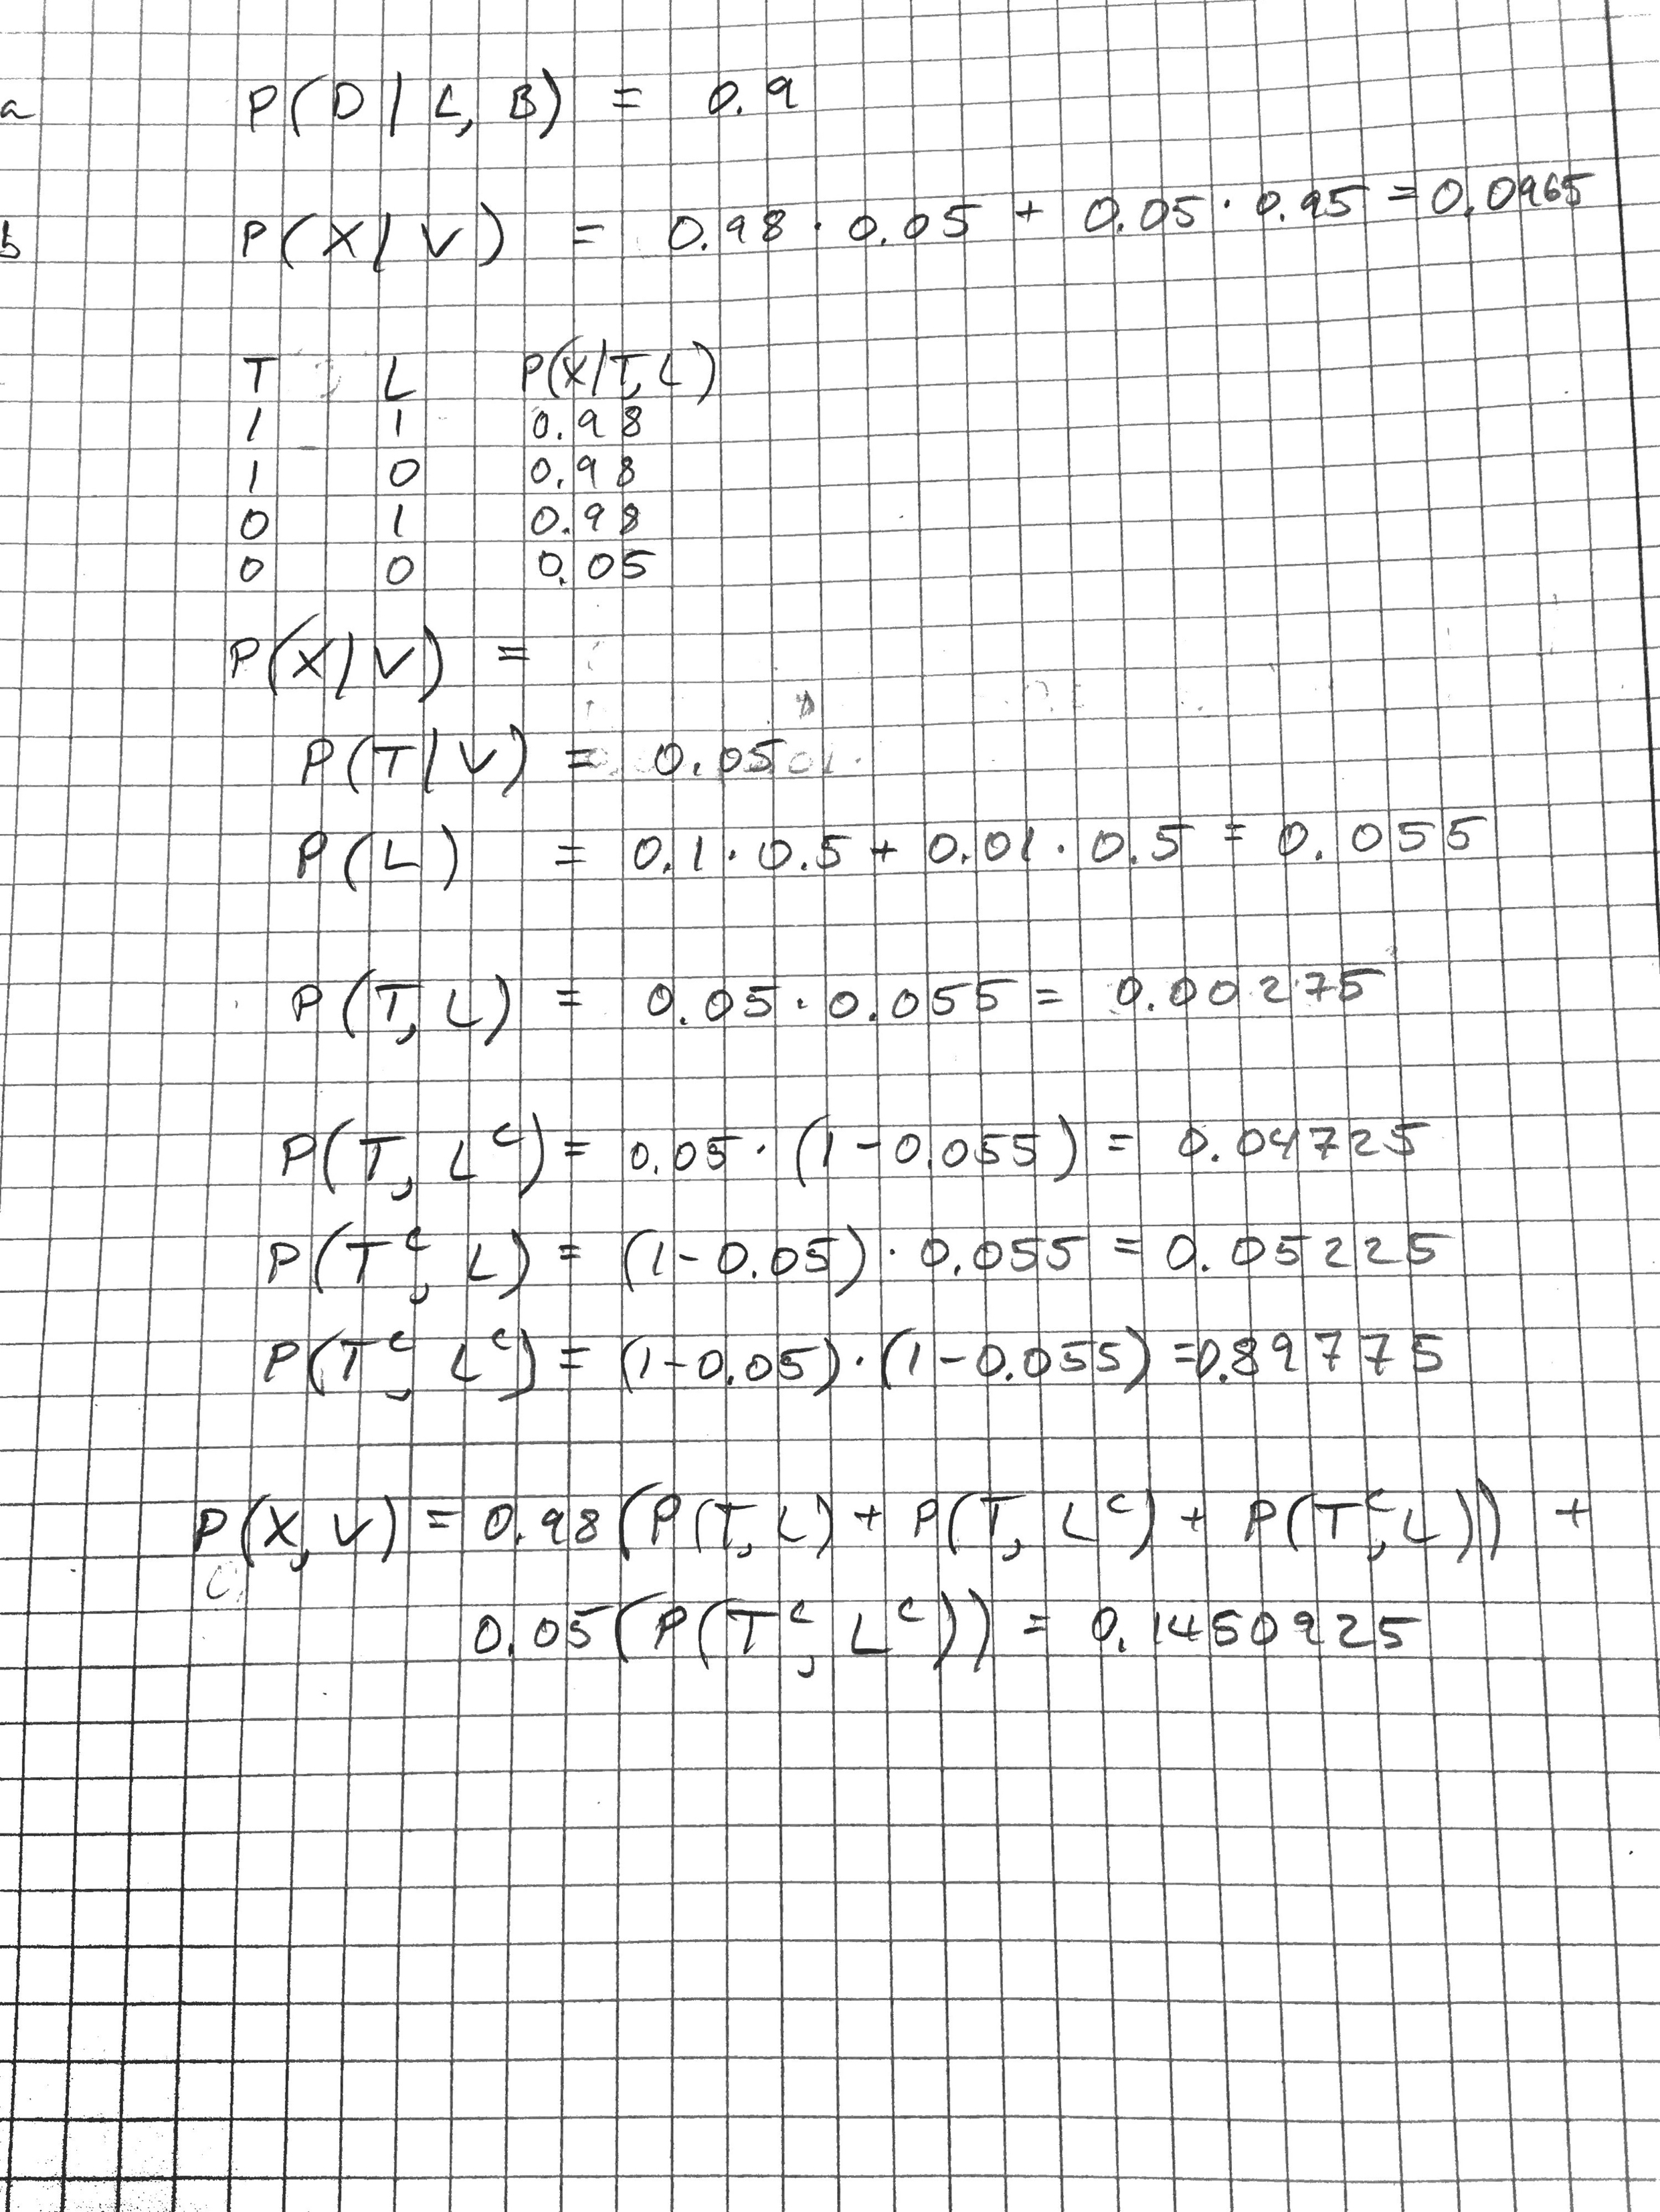 a P(D/L, B) = 0.9
b P(X/V) = 0.98 · 0.05 + 0.05 · 0.95 = 0.0965
T L P(X/T, L)
1 1 0.98
1 0 0.98
0 1 0.98
0 0 0.05
P(X/V) =
P(T/V) = 0.05
P(L) = 0.1 · 0.5 + 0.01 · 0.5 = 0.055
P(T, L) = 0.05 · 0.055 = 0.00275
P(T, Lᶜ) = 0.05 · (1 - 0.055) = 0.04725
P(Tᶜ, L) = (1 - 0.05) · 0.055 = 0.05225
P(Tᶜ, Lᶜ) = (1 - 0.05) · (1 - 0.055) = 0.89775
P(X, V) = 0.98(P(T, L) + P(T, Lᶜ) + P(Tᶜ, L)) +
0.05(P(Tᶜ, Lᶜ)) = 0.1450925